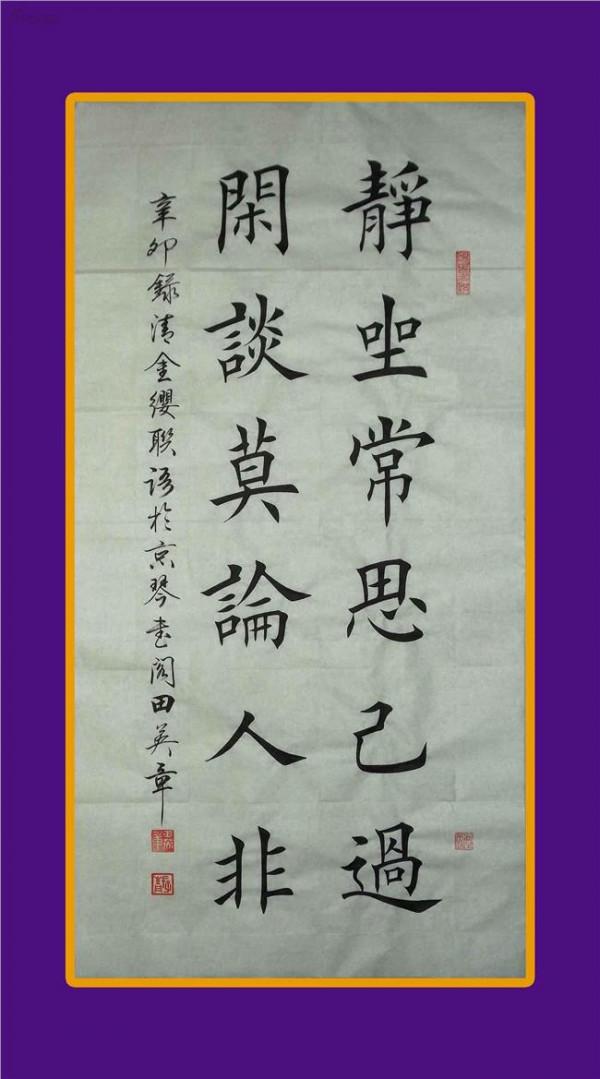 靜坐常思己過
閑談莫論人非
辛卯錄清金纓聯語於京琴书阁田英章